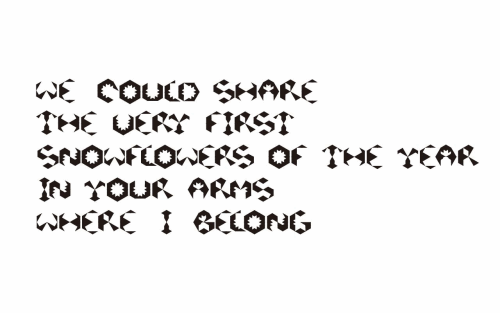 WE COULD SHARE
THE VERY FIRST
SNOWFLOWERS OF THE YEAR
IN YOUR ARMS
WHERE I BELONG